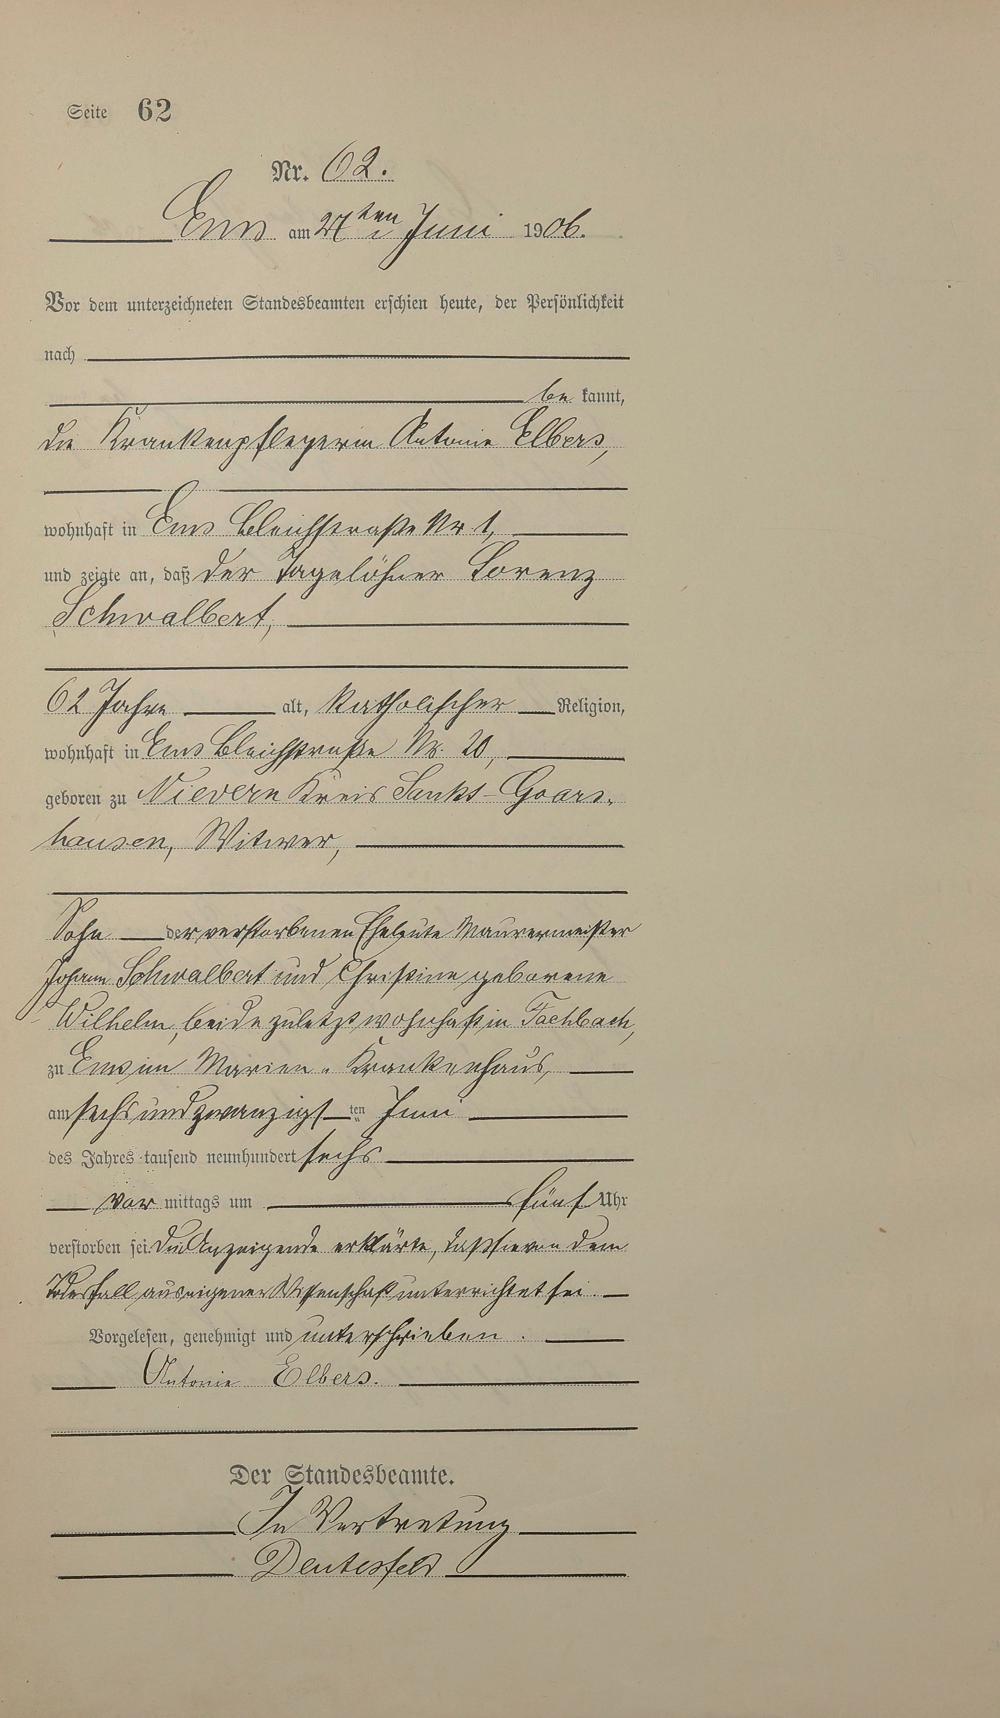 Seite 62
Nr. 62.
Ems am 27ten Juni 1906.
Vor dem unterzeichneten Standesbeamten erschien heute, der Persönlichkeit
nach
be kannt,
die Krankenpflegerin Antonie Elbers,
wohnhaft in Ems Bleichstraße Nr 1,
und zeigte an, daß der Tagelöhner Lorenz
Schwalbert,
62 Jahre alt, katholischer Religion,
wohnhaft in Ems Bleichstraße Nr. 20,
geboren zu Nievern Kreis Sankt-Goars-
hausen, Witwer,
Sohn der verstorbenen Eheleute Maurermeister
Johann Schwalbert und Christine geborene
Wilhelm, beide zuletzt wohnhaft in Fachbach,
zu Ems im Marien-Krankenhaus,
am sechsundzwanzigsten Juni
des Jahres tausend neunhundert sechs
vor mittags um fünf Uhr
verstorben sei. Die Anzeigende erklärte, daß sie von dem
Todesfall aus eigener Wissenschaft unterrichtet sei.
Vorgelesen, genehmigt und unterschrieben.
Antonie Elbers.
Der Standesbeamte.
In Vertretung